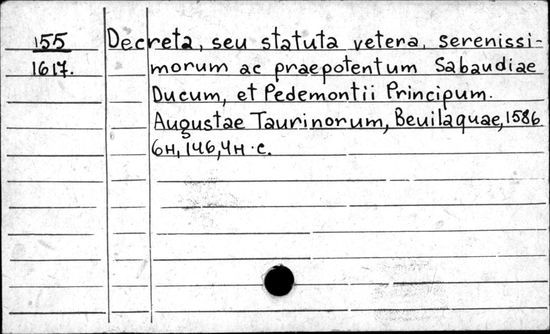 155 Decreta, seu statuta vetera, serenissi-
1617. morum ac praepotentum Sabaudiae
Ducum, et Pedemontii Principum.
Augustae Taurinorum, Beuilaquae, 1586
6н, 146, 4н. с.